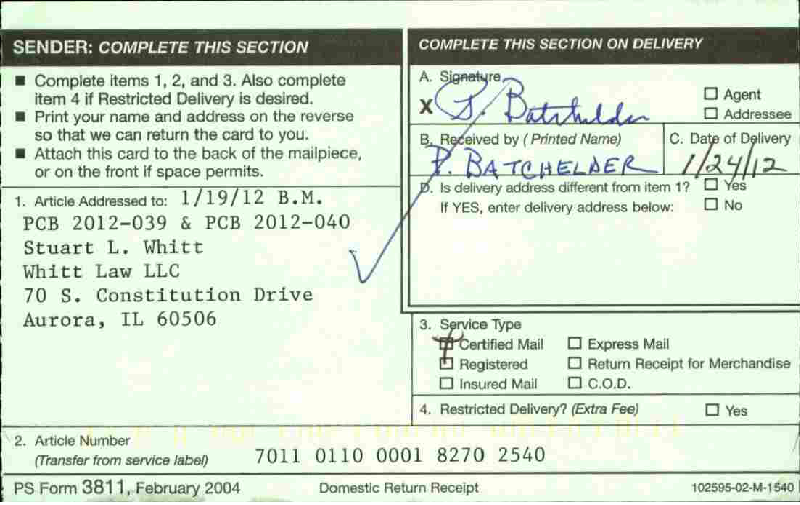 SENDER: COMPLETE THIS SECTION
■ Complete items 1, 2, and 3. Also complete
item 4 if Restricted Delivery is desired.
■ Print your name and address on the reverse
so that we can return the card to you.
■ Attach this card to the back of the mailpiece,
or on the front if space permits.
1. Article Addressed to: 1/19/12 B.M.
PCB 2012-039 & PCB 2012-040
Stuart L. Whitt
Whitt Law LLC
70 S. Constitution Drive
Aurora, IL 60506
2. Article Number
(Transfer from service label) 7011 0110 0001 8270 2540
COMPLETE THIS SECTION ON DELIVERY
A. Signature
X P. Batchelder
☐ Agent
☐ Addressee
B. Received by (Printed Name)
P. BATCHELDER
C. Date of Delivery
1/24/12
D. Is delivery address different from item 1? ☐ Yes
If YES, enter delivery address below: ☐ No
3. Service Type
Certified Mail ☐ Express Mail
☐ Registered ☐ Return Receipt for Merchandise
☐ Insured Mail ☐ C.O.D.
4. Restricted Delivery? (Extra Fee) ☐ Yes
PS Form 3811, February 2004 Domestic Return Receipt 102595-02-M-1540